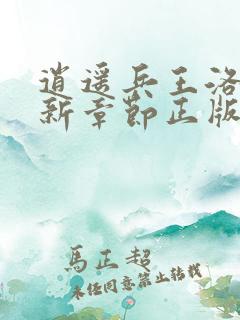 逍遥兵王洛
新章節正版
馬正超
未任同意禁止转载